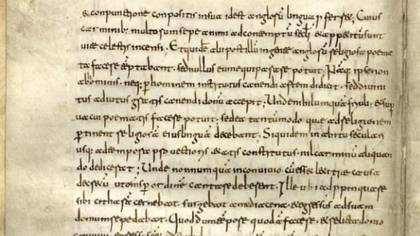 & conpunctione conpositis in sua id est anglorum lingua proferret. Cuius
carminib; multorum saepe animi ad contemptum saeculi & appetitum sunt
uitae caelestis accensi. Et quidem & alii post illum in gente anglorum religiosa poema
ta facere temptabant. sed nullus eum aequiparare potuit. Namq; ipse non
ab hominib; neq; per hominem institutus canendi artem didicit. sed diuini
tus adiutus gratis canendi donum accepit; Unde nihil umquam friuoli & super
uacui poematis facere potuit. sed ea tantummodo quae ad relegionem
pertinent religiosam eius linguam decebant. Siquidem in habitu seculari
usq; ad tempora prouectioris aetatis constitutus. nil carminum aliquan
do dedicerat; Unde non numquam in conuiuio cum esset laetitiae causa
decretum ut omnes per ordinem cantare deberent. Ille ubi adpropinquare
sibi citharam cernebat surgebat a media caena. & egressus ad suam
domum repedabat. Quod dum tempore quodam faceret. & relicta domo